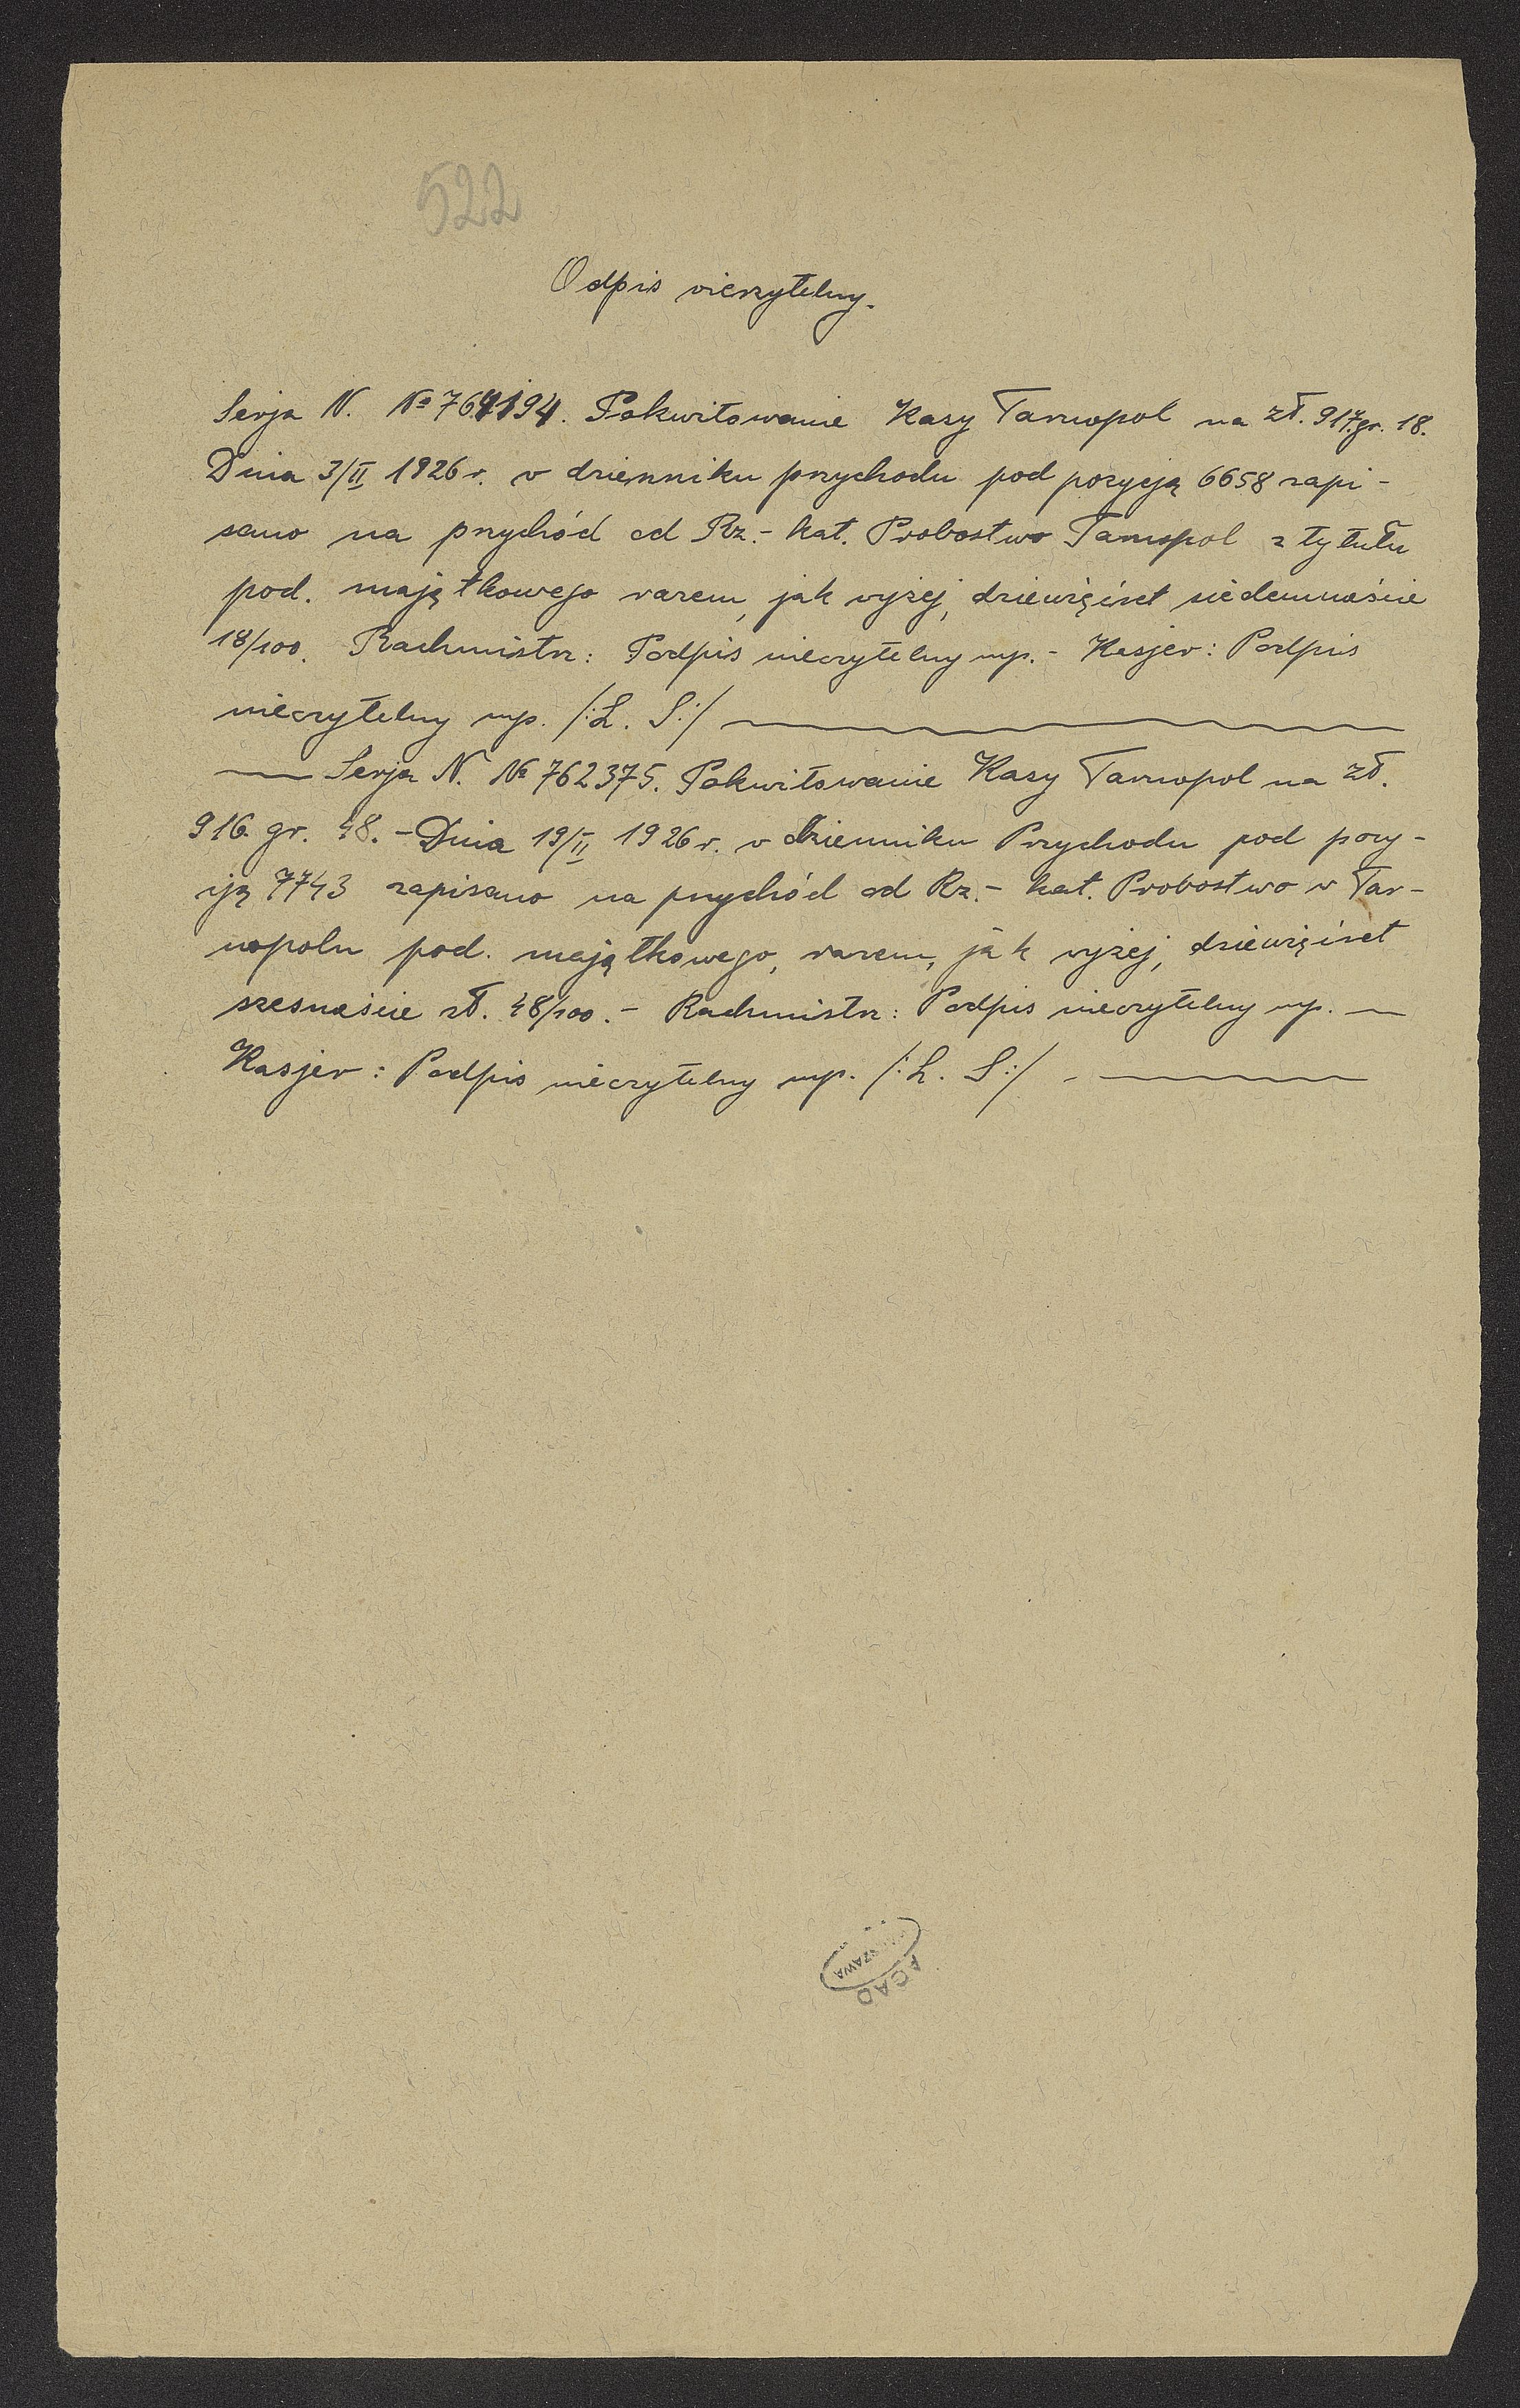 522
Odpis wierzytelny.
Serja N. № 764194. Pokwitowanie Kasy Tarnopol na zł. 917.gr. 18.
Dnia 3/II 1926 r. w dzienniku przychodu pod pozycją 6658 zapi-
sano na przychód od Rz.- kat. Probostwo Tarnopol z tytułu
pod. majątkowego razem, jak wyżej, dziewięćset siedemnaście
18/100. Rachmistrz: Podpis nieczytelny mp.- Kasjer: Podpis
nieczytelny mp. /:L. S:/
Serja N. № 762375. Pokwitowanie Kasy Tarnopol na zł.
916. gr. 48. - Dnia 19/II 1926 r. w Dzienniku Przychodu pod pozy-
cją 7743 zapisano na przychód od Rz.- kat. Probostwo w Tar-
nopolu pod. majątkowego, razem, jak wyżej, dziewięćset
szesnaście zł. 48/100. - Rachmistrz: Podpis nieczytelny mp. -
Kasjer: Podpis nieczytelny mp. /:L. S:/ -
AGAD
WARSZAWA